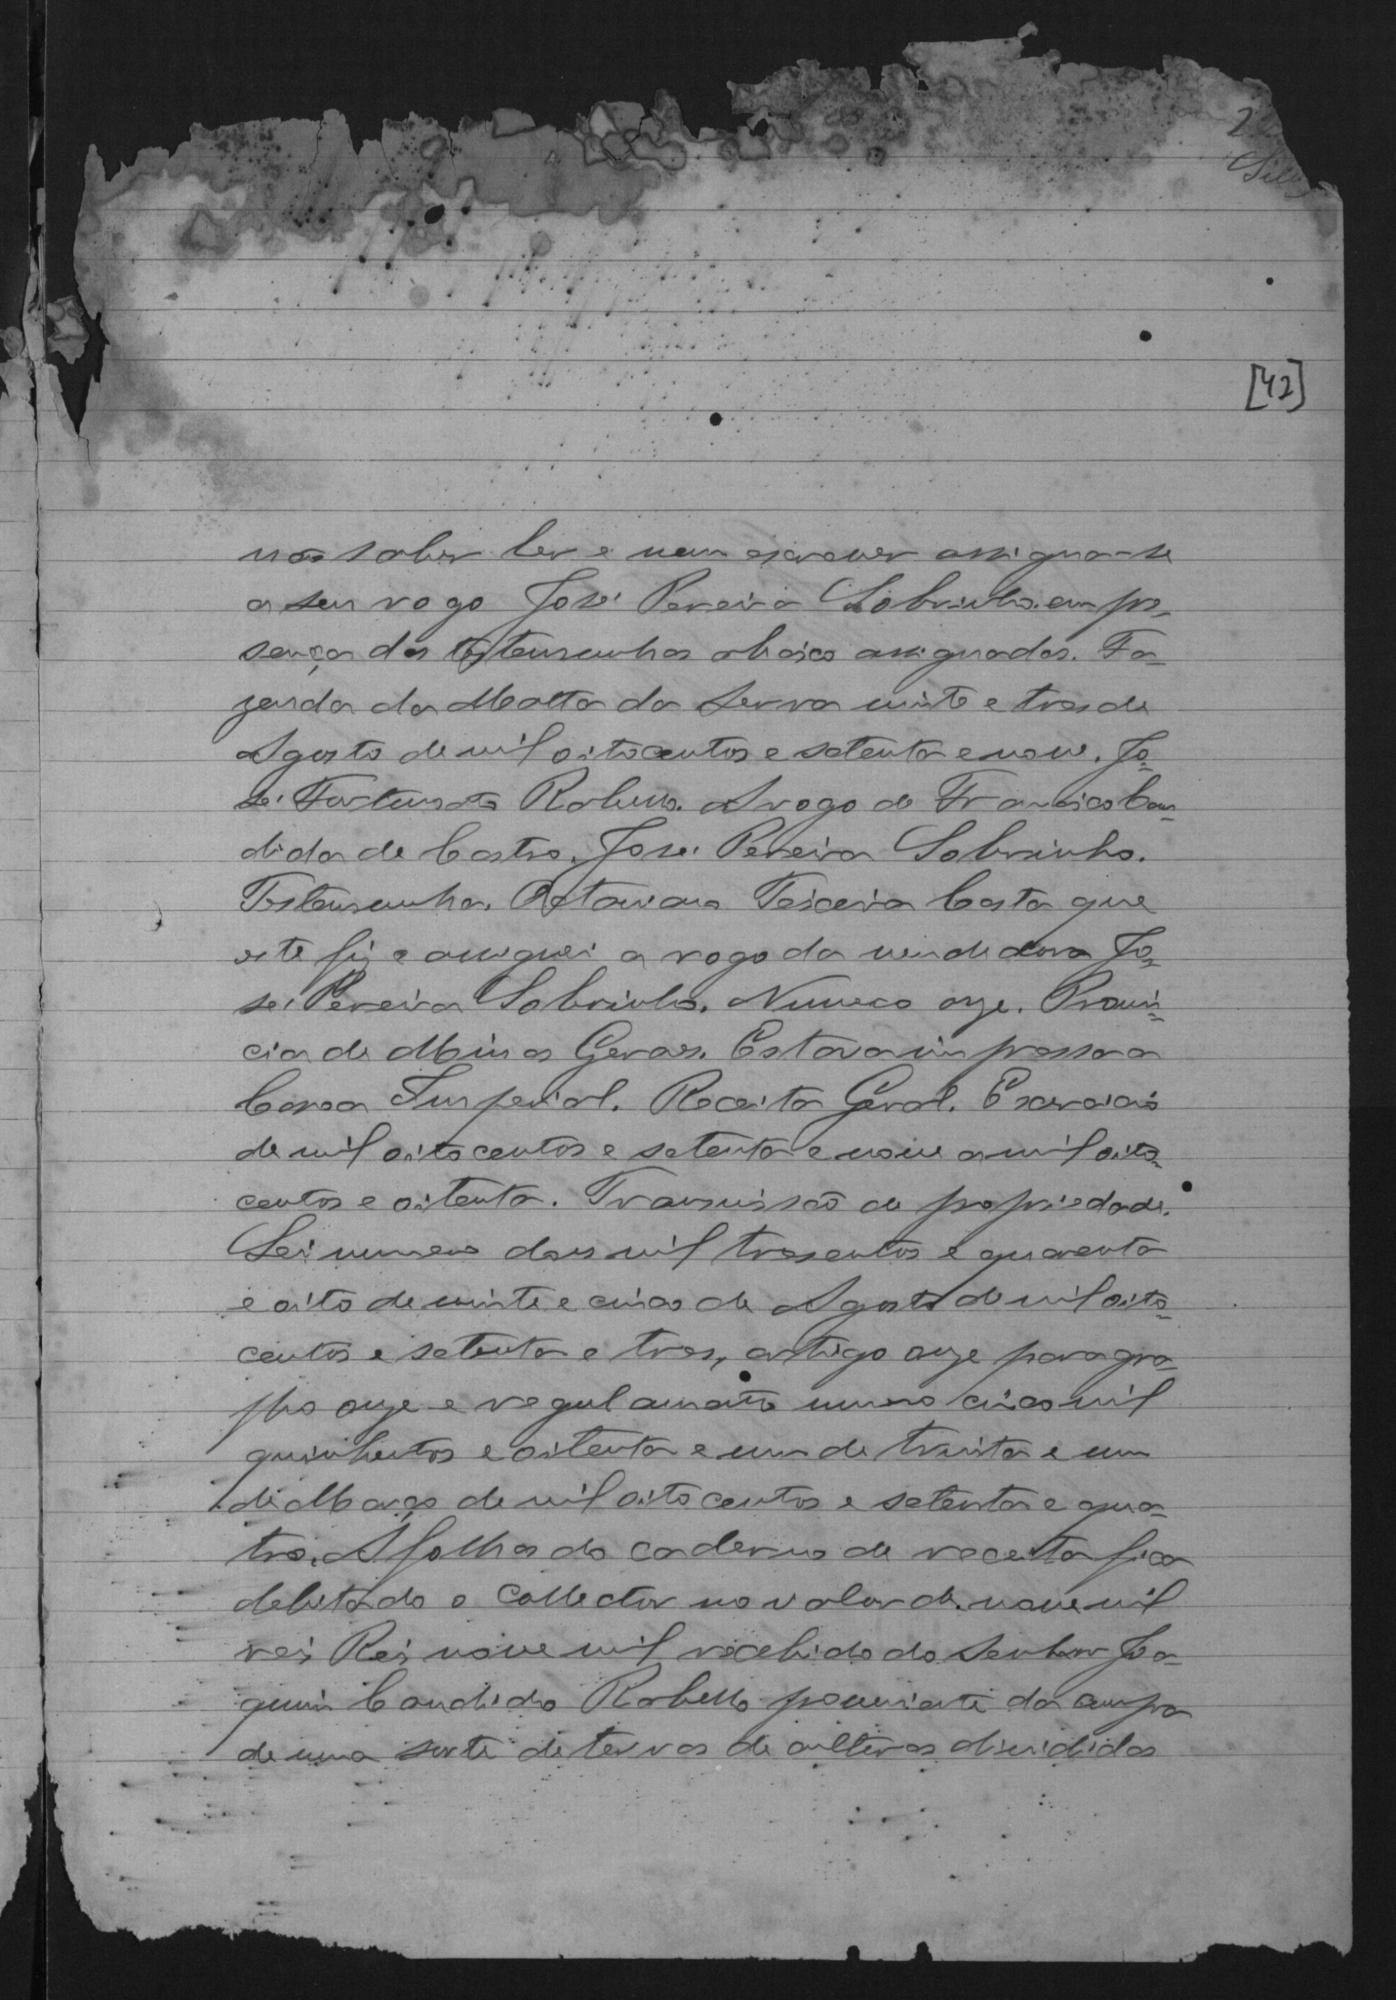 2
Silv
[42]
não saber ler e nem escrever assigna-se
a seu rogo José Pereira Sobrinho em pre-
sença das testemunhas abaixo assignadas. Fa-
zenda da Matta da Serra vinte e tres de
Agosto de mil oitocentos e setenta e nove. Jo-
sé Fortunato Rabello. A rogo de Francisca Can-
dida de Castro, José Pereira Sobrinho.
Testemunha. Octaviano Teixeira Costa que
este fiz e assignei a rogo da vendedora Jo-
sé Pereira Sobrinho. Numero onze. Provin-
cia de Minas Geraes. Estava impressa a
Coroa Imperial. Receita Geral. Exercicio
de mil oitocentos e setenta e nove a mil oito-
centos e oitenta. Transmissão de propriedade.
Lei numero dous mil tresentos e quarenta
e oito de vinte e cinco de Agosto de mil oito-
centos e setenta e tres, artigo onze paragra-
pho onze e regulamento numero cinco mil
quinhentos e oitenta e um de trinta e um
de Março de mil oitocentos e setenta e qua-
tro. A folhas do caderno de receita fica
debitado o collector no valor de nove mil
reis Reis nove mil recebido do Senhor Joa-
quim Candido Rabello proveniente da compra
de uma sorte de terras de culturas divididas